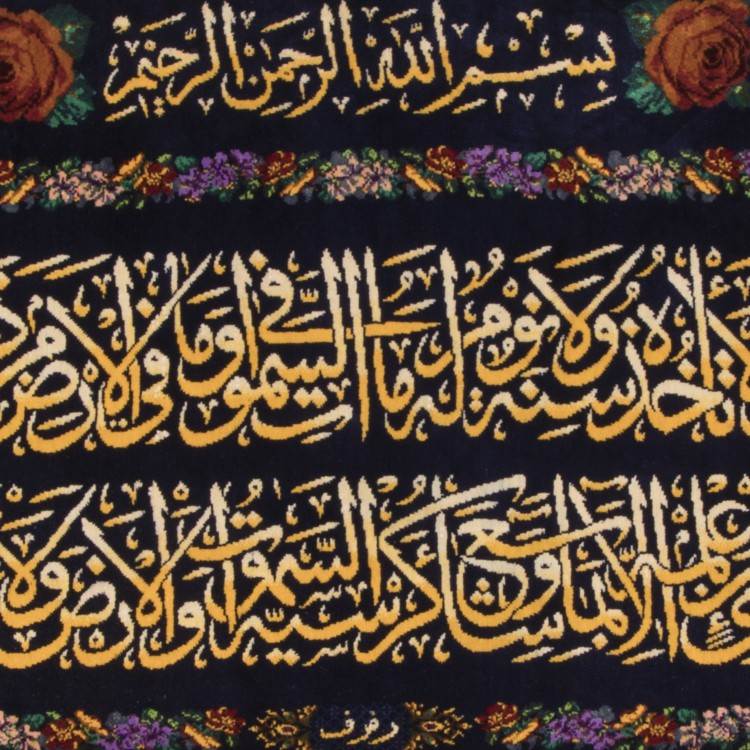 بسم الله الرحمن الرحيم
لا تأخذه سنة ولا نوم له ما في السموات وما في الارض
علمه الا بما شاء وسع كرسيه السموات والارض ولا
رفرف